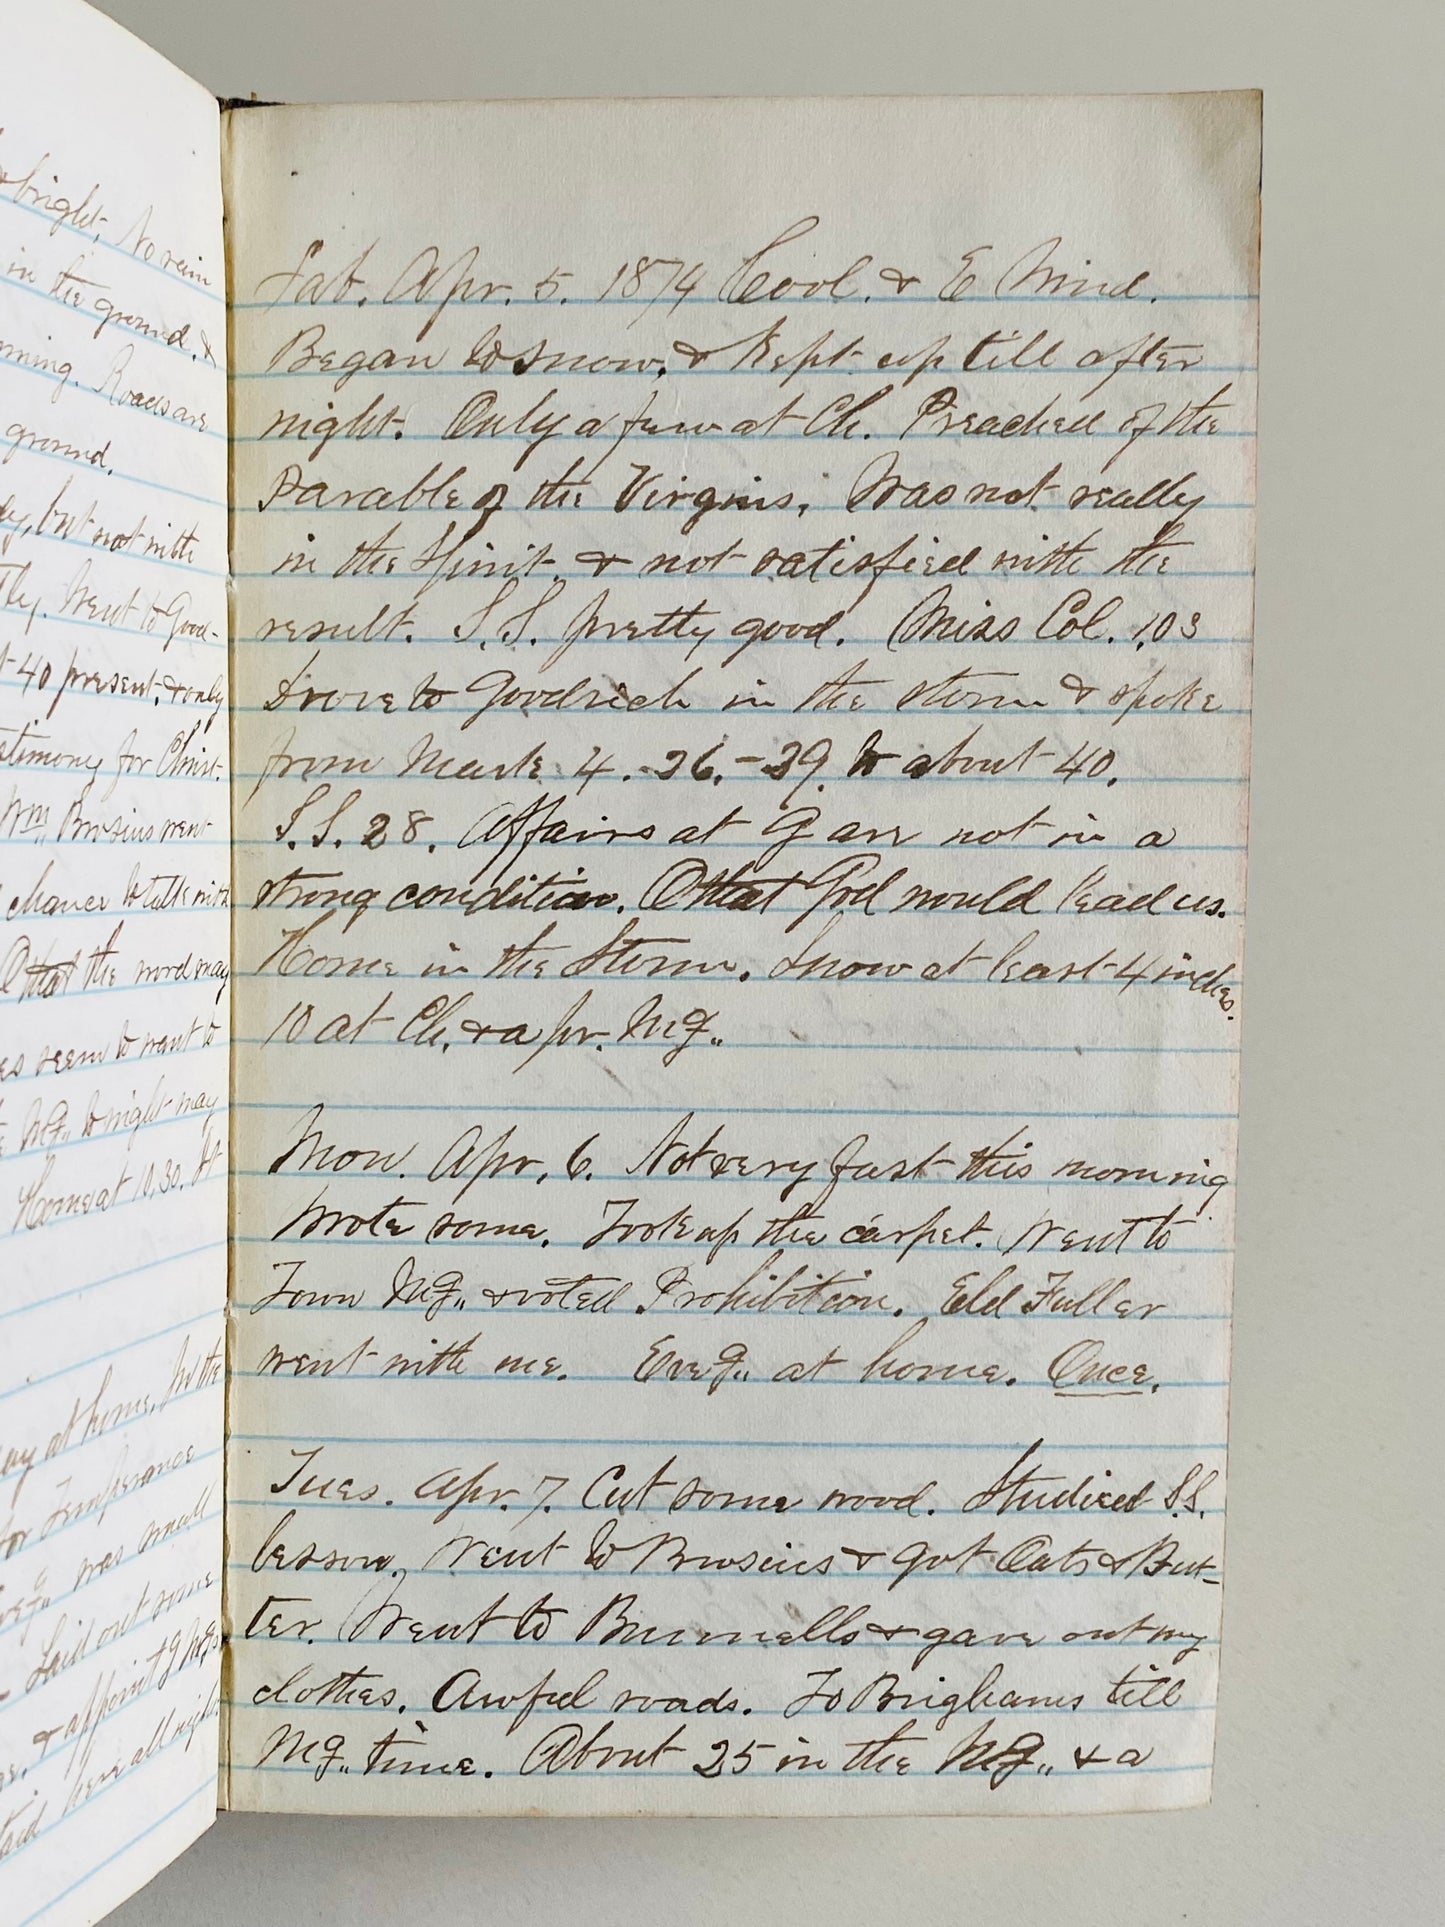 & bright, No rain
in the ground, &
rning. Roads are
ground.
dy, but not with
Tly. Went to Good-
t 40 present, & only
stimony for Christ.
Wm,, Brosius went
chance to talk with
O that the word may
es seem to want to
Mg,, to night may
Home at 10,30. At
ay at home, In the
for Temperance
veg,, was small
Laid out some
& appoint'g Mgs.
here all right.
Sab. Apr. 5. 1874 Cool. & E Wind.
Began to snow, & kept up till after
night. Only a few at Ch. Preached of the
Parable of the Virgins. Was not really
in the Spirit. & not satisfied with the
result. S.S. pretty good. Miss Col. 1,03
Drove to Goodrich in the storm & spoke
from Mark 4. 26.-29. to about 40.
S.S. 28. Affairs at G are not in a
strong condition. O that God would lead us.
Home in the Storm. Snow at least 4 inches.
10 at Ch. & a pr. Mg,,
Mon. Apr. 6. Not very fast this morning
Wrote some. Took up the carpet. Went to
Town Mg,, & voted Prohibition. Eld Fuller
went with me. Eveg,, at home. Once.
Tues. Apr. 7. Cut some wood. Studied S.S.
lesson. Went to Brosius & got Oats & But-
ter. Went to Bunnells & gave out my
clothes. Awful roads. To Brighams till
Mg,, time. About 25 in the Mg,, & a